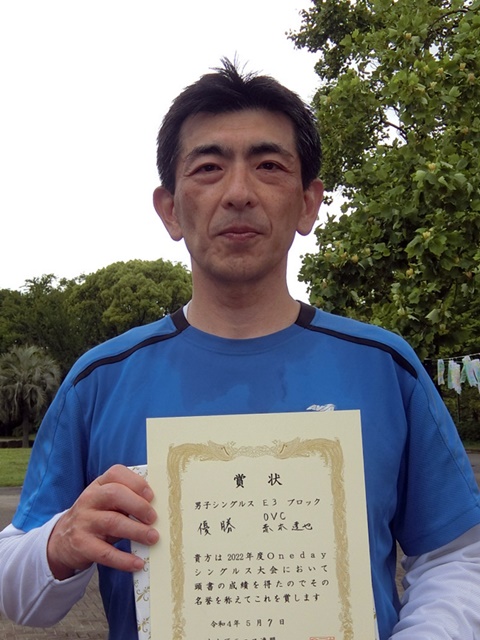 賞状
男子シングルス E3 ブロック
優勝 OVC
貴方は2022年度Oneday
シングルス大会において
頭書の成績を得たのでその
名誉を称えてこれを賞します
令和4年5月7日